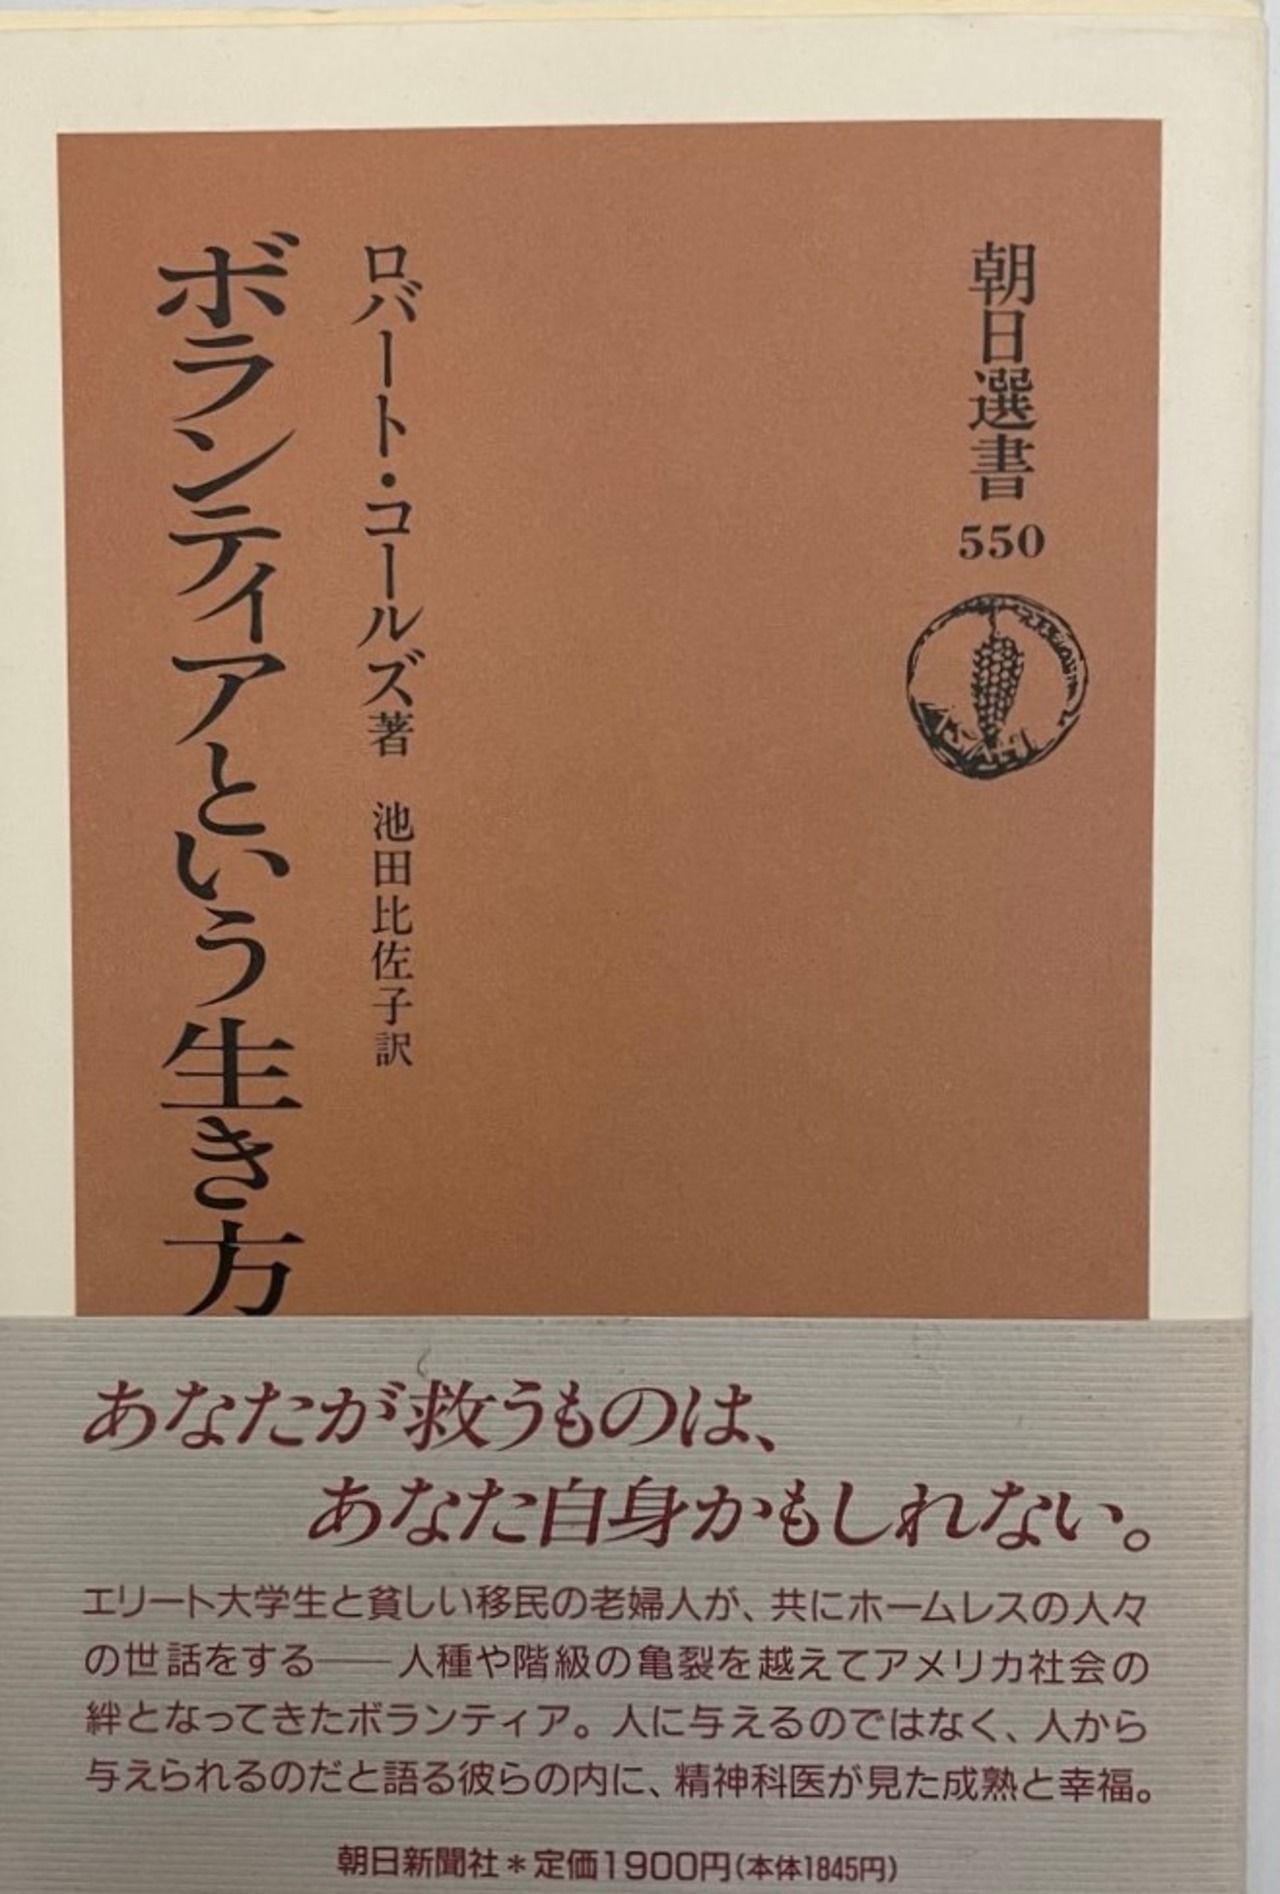 朝日選書
550
ロバート・コールズ著 池田比佐子訳
ボランティアという生き方
あなたが救うものは、
あなた自身かもしれない。
エリート大学生と貧しい移民の老婦人が、共にホームレスの人々
の世話をする――人種や階級の亀裂を越えてアメリカ社会の
絆となってきたボランティア。人に与えるのではなく、人から
与えられるのだと語る彼らの内に、精神科医が見た成熟と幸福。
朝日新聞社＊定価1900円(本体1845円)